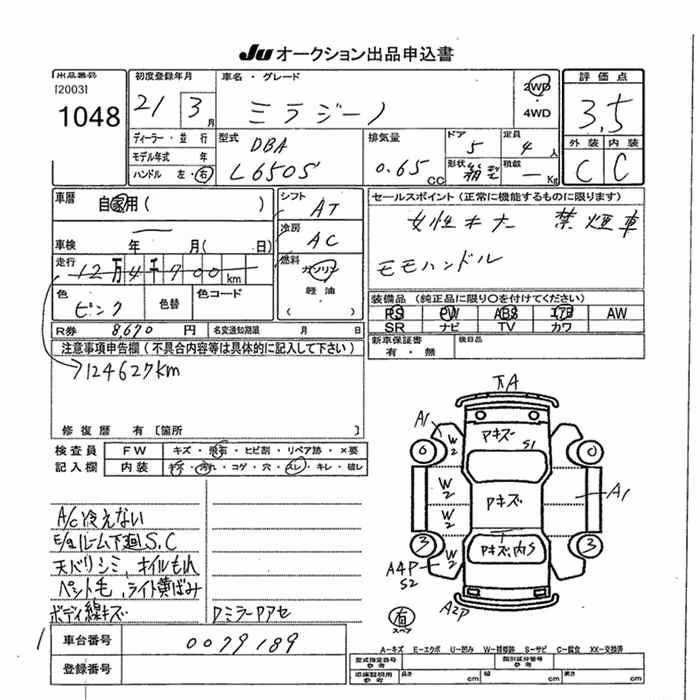 Ju オークション出品申込書
出品番号
[2003]
1048
初度登録年月
21 3月
車名・グレード
ミラジーノ
2WD
・
4WD
評価点
3.5
外装 内装
C C
ディーラー・並行
モデル年式 年
ハンドル 左・右
型式
DBA
L650S
排気量
0.65 CC
ドア
5
定員
4人
形状 箱型
積載
— Kg
車暦
自家用( )
車検 年 月( 日)
走行
12万4千700km
色
ピンク
色替
色コード
シフト
AT
冷房
AC
燃料
ガソリン
軽油
( )
セールスポイント(正常に機能するものに限ります)
女性オーナー 禁煙車
モモハンドル
装備品(純正品に限り○を付けてください)
PS PW ABS エアB AW
SR ナビ TV カワ
新車保証書
有・無
後日品
R券 8670 円 名変通知期限 月 日
注意事項申告欄(不具合内容等は具体的に記入して下さい)
124627km
修復歴 有 [箇所 ]
検査員
記入欄
FW キズ・飛石・ヒビ割・リペア跡・×要
内装 キズ・汚れ・コゲ・穴・スレ・キレ・破レ
A/C冷えない
E/gルーム下廻S.C
天バリシミ、オイルもれ
ペット毛、ライト黄ばみ
ボディ線キズ
Dミラーアアセ
下A
A1
W2
アキズ
S1
6
0
W2
アキズ
A1
W2
3
W2
アキズ、内S
3
A4P
S2
A2P
有
スペア
車台番号 0079189
登録番号
A—キズ E—エクボ U—凹み W—補修跡 S—サビ C—腐食 XX—交換済
型式指定番号
参考
類別区分番号
参考
車庫証明用
参考
長さ cm 幅 cm 高さ cm